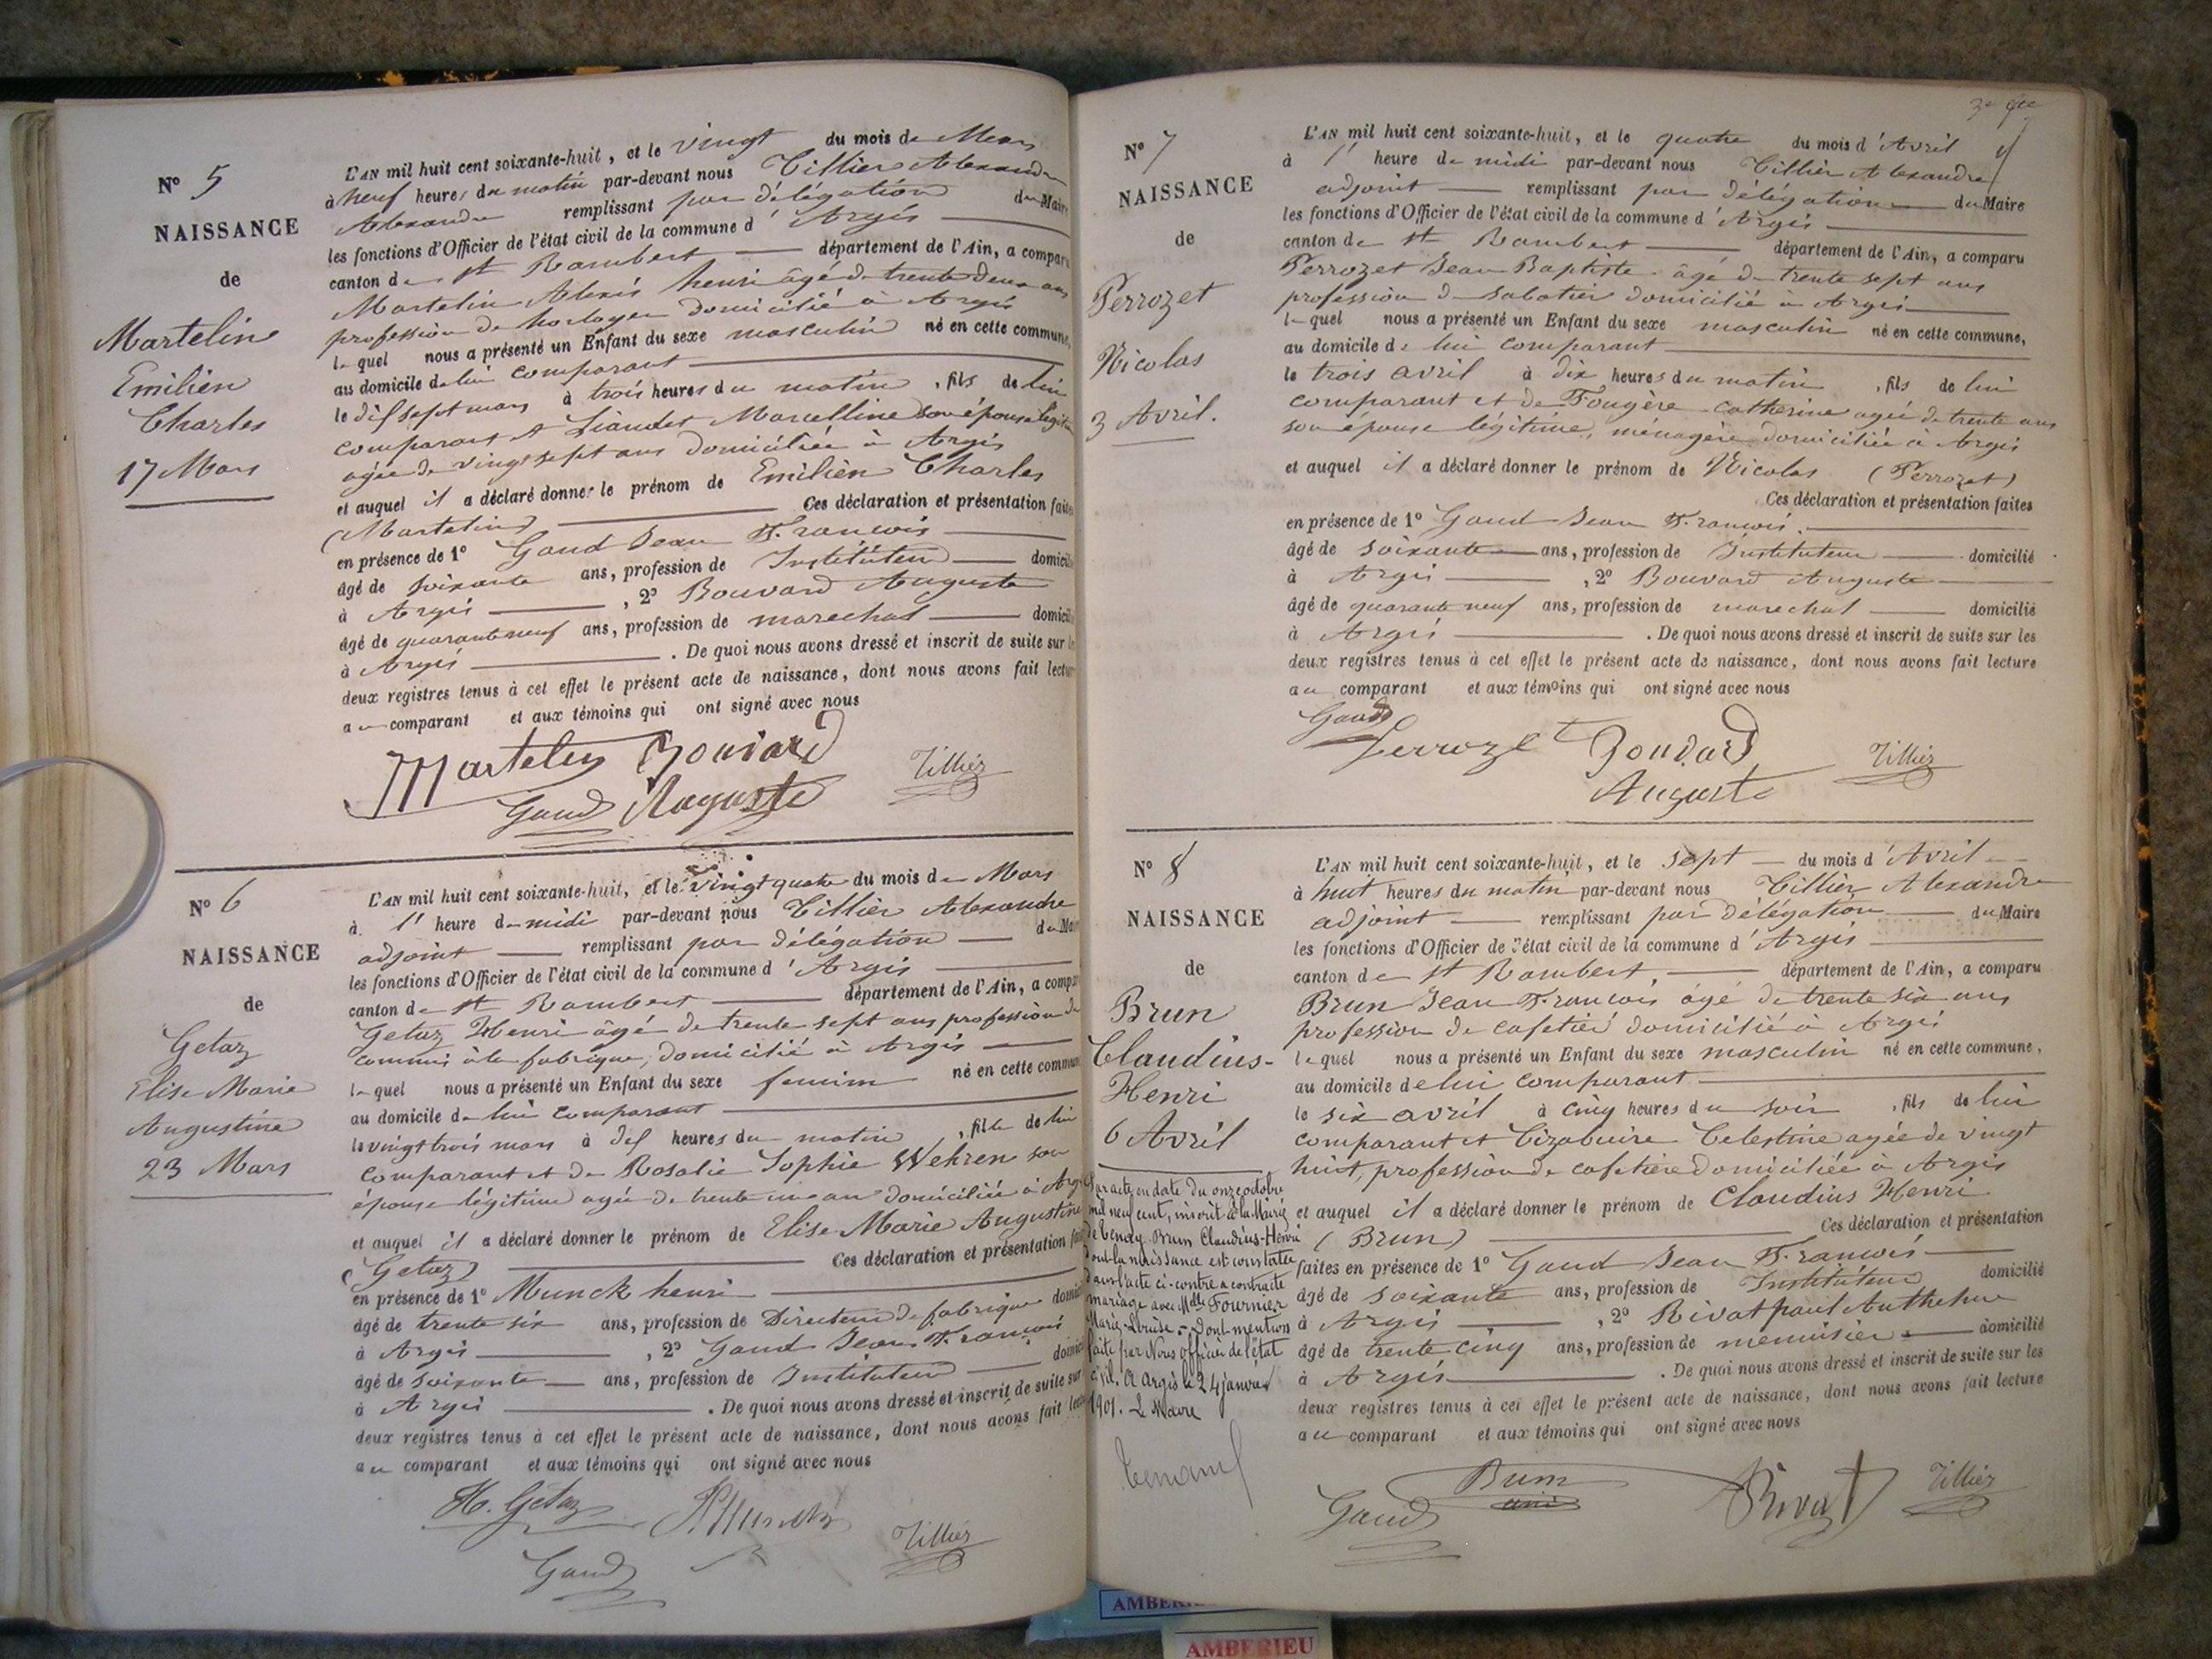 N° 5
NAISSANCE
de
Martelin
Emilien
Charles
17 Mars
L'AN mil huit cent soixante-huit, et le vingt du mois de Mars
à neuf heures du matin par-devant nous Tillier Alexandre
Alexandre remplissant par délégation du Maire
les fonctions d'Officier de l'état civil de la commune d'Argis
canton de St Rambert département de l'Ain, a comparu
Martelin Alexis henri âgé de trente deux ans
profession de horloger domicilié à Argis
lequel nous a présenté un Enfant du sexe masculin né en cette commune,
au domicile de lui comparant
le dix sept mars à trois heures du matin, fils de lui
comparant et Liandet Marcelline son épouse légitime
agée de vingt sept ans domiciliée à Argis
et auquel il a déclaré donner le prénom de Emilien Charles
(Martelin) Ces déclaration et présentation faites
en présence de 1° Gaud Jean François
âgé de soixante ans, profession de Instituteur domicilié
à Argis, 2° Bouvard Auguste
âgé de quarante neuf ans, profession de marechal domicilié
à Argis. De quoi nous avons dressé et inscrit de suite sur les
deux registres tenus à cet effet le présent acte de naissance, dont nous avons fait lecture
au comparant et aux témoins qui ont signé avec nous
Martelin Bouvard
Gaud Auguste Tillier
N° 6
NAISSANCE
de
Getaz
Elise Marie
Augustine
23 Mars
L'AN mil huit cent soixante-huit, et le vingt quatre du mois de Mars
à 1' heure de midi par-devant nous Tillier Alexandre
adjoint remplissant par délégation du Maire
les fonctions d'Officier de l'état civil de la commune d'Argis
canton de St Rambert département de l'Ain, a comparu
Getaz Henri âgé de trente sept ans profession de
commis à la fabrique, domicilié à Argis
lequel nous a présenté un Enfant du sexe feminin né en cette commune
au domicile de lui comparant
le vingt trois mars à dix heures du matin, fille de lui
comparant et de Rosalie Sophie Wehren son
épouse légitime agée de trente un an domiciliée à Argis
et auquel il a déclaré donner le prénom de Elise Marie Augustine
(Getaz) Ces déclaration et présentation faites
en présence de 1° Munck henri
âgé de trente six ans, profession de Directeur de fabrique domicilié
à Argis, 2° Gaud Jean François
âgé de soixante ans, profession de Instituteur domicilié
à Argis. De quoi nous avons dressé et inscrit de suite sur
deux registres tenus à cet effet le présent acte de naissance, dont nous avons fait lecture
au comparant et aux témoins qui ont signé avec nous
H. Getaz
Gaud Tillier
N° 7
NAISSANCE
de
Perrozet
Nicolas
3 Avril.
L'AN mil huit cent soixante-huit, et le quatre du mois d'Avril
à 1' heure de midi par-devant nous Tillier Alexandre
adjoint remplissant par délégation du Maire
les fonctions d'Officier de l'état civil de la commune d'Argis
canton de St Rambert département de l'Ain, a comparu
Perrozet Jean Baptiste âgé de trente sept ans
profession de sabotier domicilié à Argis
lequel nous a présenté un Enfant du sexe masculin né en cette commune,
au domicile de lui comparant
le trois avril à dix heures du matin, fils de lui
comparant et de Fougère Catherine agée de trente ans
son épouse légitime, ménagère domiciliée à Argis
et auquel il a déclaré donner le prénom de Nicolas (Perrozet)
Ces déclaration et présentation faites
en présence de 1° Gaud Jean François
âgé de soixante ans, profession de Instituteur domicilié
à Argis, 2° Bouvard Auguste
âgé de quarante neuf ans, profession de marechal domicilié
à Argis. De quoi nous avons dressé et inscrit de suite sur les
deux registres tenus à cet effet le présent acte de naissance, dont nous avons fait lecture
au comparant et aux témoins qui ont signé avec nous
Gaud
Perrozet Bouvard Tillier
Auguste
N° 8
NAISSANCE
de
Brun
Claudius-
Henri
6 Avril
Par acte en date du onze octobre
mil neuf cent, inscrit à la Mairie
de Tenay Brun Claudius-Henri
dont la naissance est constatée
dans l'acte ci-contre a contracté
mariage avec Melle Fournier
Marie-Louise.- Dont mention
faite par Nous officier de l'état
civil. A Argis le 24 janvier
1901. Le Maire
L'AN mil huit cent soixante-huit, et le sept du mois d'Avril
à huit heures du matin par-devant nous Tillier Alexandre
adjoint remplissant par délégation du Maire
les fonctions d'Officier de l'état civil de la commune d'Argis
canton de St Rambert département de l'Ain, a comparu
Brun Jean François âgé de trente six ans
profession de cafetier domicilié à Argis
lequel nous a présenté un Enfant du sexe masculin né en cette commune,
au domicile de lui comparant
le six avril à cinq heures du soir, fils de lui
comparant et Tizabuire Celestine agée de vingt
huit, profession de cafetière domiciliée à Argis
et auquel il a déclaré donner le prénom de Claudius Henri
(Brun) Ces déclaration et présentation
faites en présence de 1° Gaud Jean François
âgé de soixante ans, profession de Instituteur domicilié
à Argis, 2° Rivat paul Anthelme
âgé de trente cinq ans, profession de menuisier domicilié
à Argis. De quoi nous avons dressé et inscrit de suite sur les
deux registres tenus à cet effet le présent acte de naissance, dont nous avons fait lecture
au comparant et aux témoins qui ont signé avec nous
Gaud Brun Rivat Tillier
AMBERIEU